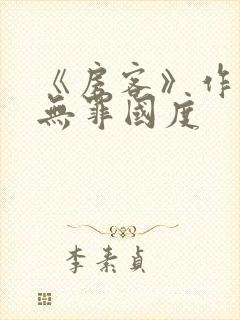 《房客》.作
無罪國度
李素貞